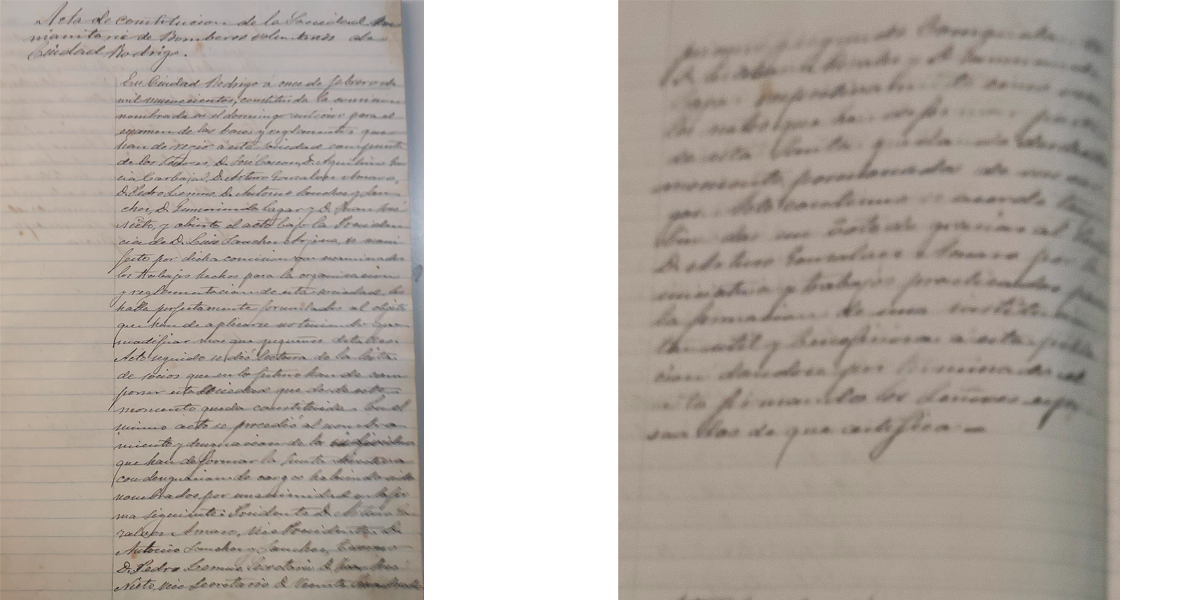 Acta de constitucion de la Sociedad Hu
manitaria de Bomberos voluntarios de
Ciudad Rodrigo.
En Ciudad Rodrigo á once de febrero de
mil novecientos, constituida la comision
nombrada en el domingo anterior para el
examen de las bases y reglamento que
han de regir á esta sociedad compuesta
de los Señores, D. José D. Agustin Gar
cia Carbajal, D. Arturo Gonzalez Amaro,
D. Pedro D. Antonio Sanchez y San
chez, D. Gumersindo Cagar y D. Juan José
Nieto, y abierto el acto bajo la Presiden
cia de D. Luis Sanchez Arjona, se mani
festó por dicha comision que examinados
los trabajos hechos para la organizacion
y reglamentacion de esta sociedad los
halla perfectamente formulados al objeto
que han de aplicarse no teniendo que
modificar mas que pequeños detalles.
Acto seguido se dió lectura de la lista
de socios que en lo futuro han de com
poner esta Sociedad que desde este
momento queda constituida. En el
mismo acto se procedió al nombra
miento y designacion de los individuos
que han de formar la Junta directiva
con designacion de cargos habiendo sido
nombrados por unanimidad en la for
ma siguiente: Presidente D. Arturo Gon
zalez Amaro, Vice Presidente D.
Antonio Sanchez y Sanchez, Tesorero
D. Pedro Secretario D. Juan José
Nieto, vice Secretario D. Vicente
primero y segundo
D. y D. Gumersindo
Cagar respectivamente como
los cuales que han de formar parte
de esta Junta queda desde este
momento posesionada de sus car
gos. Acto continuo se acordó tam
bien dar un voto de gracias al Señor
D. Arturo Gonzalez Amaro por la
iniciativa y trabajos practicados para
la formacion de una institucion
tan util y beneficiosa á esta pobla
cion dandose por terminado el
acta firmando los Señores expre
sados de que certifico.